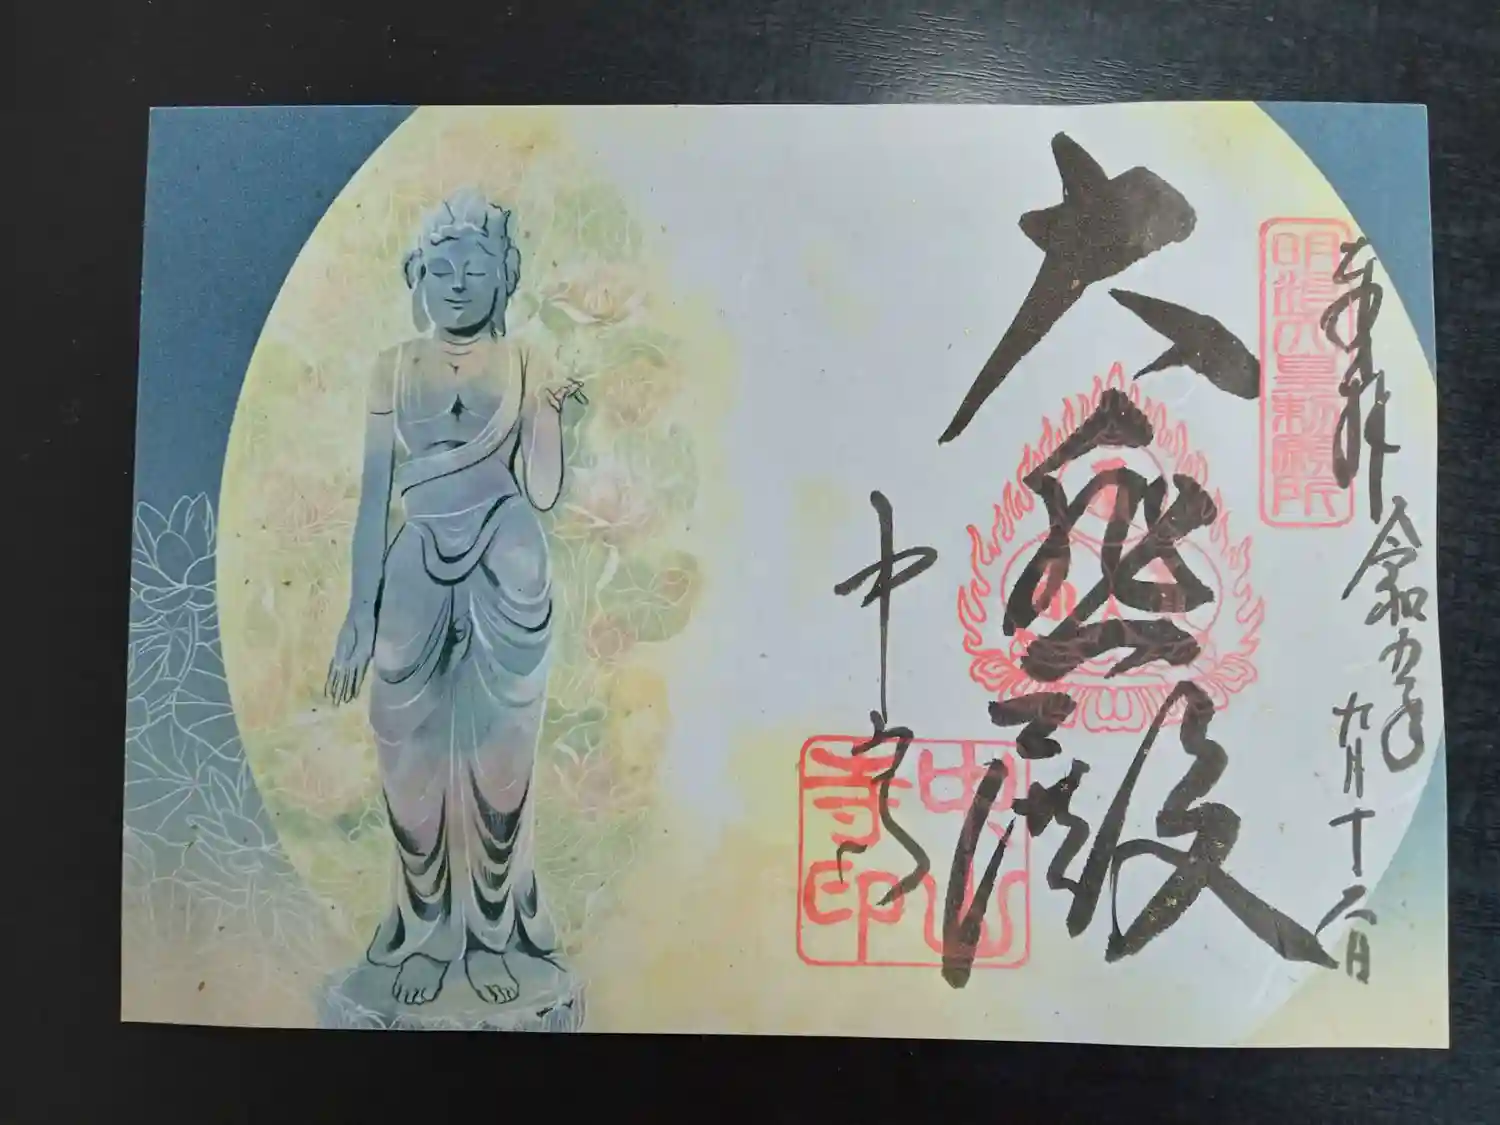 奉拝 令和五年
九月十 日
明治天皇勅願所
大悲殿
中山寺
中山寺印